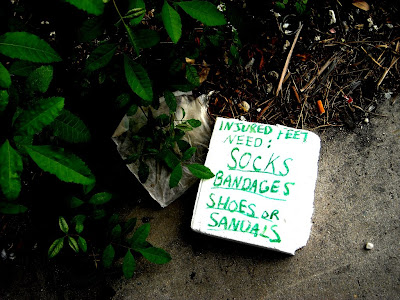 INSURED FEET
NEED:
SOCKS
BANDAGES
SHOES OR
SANDALS